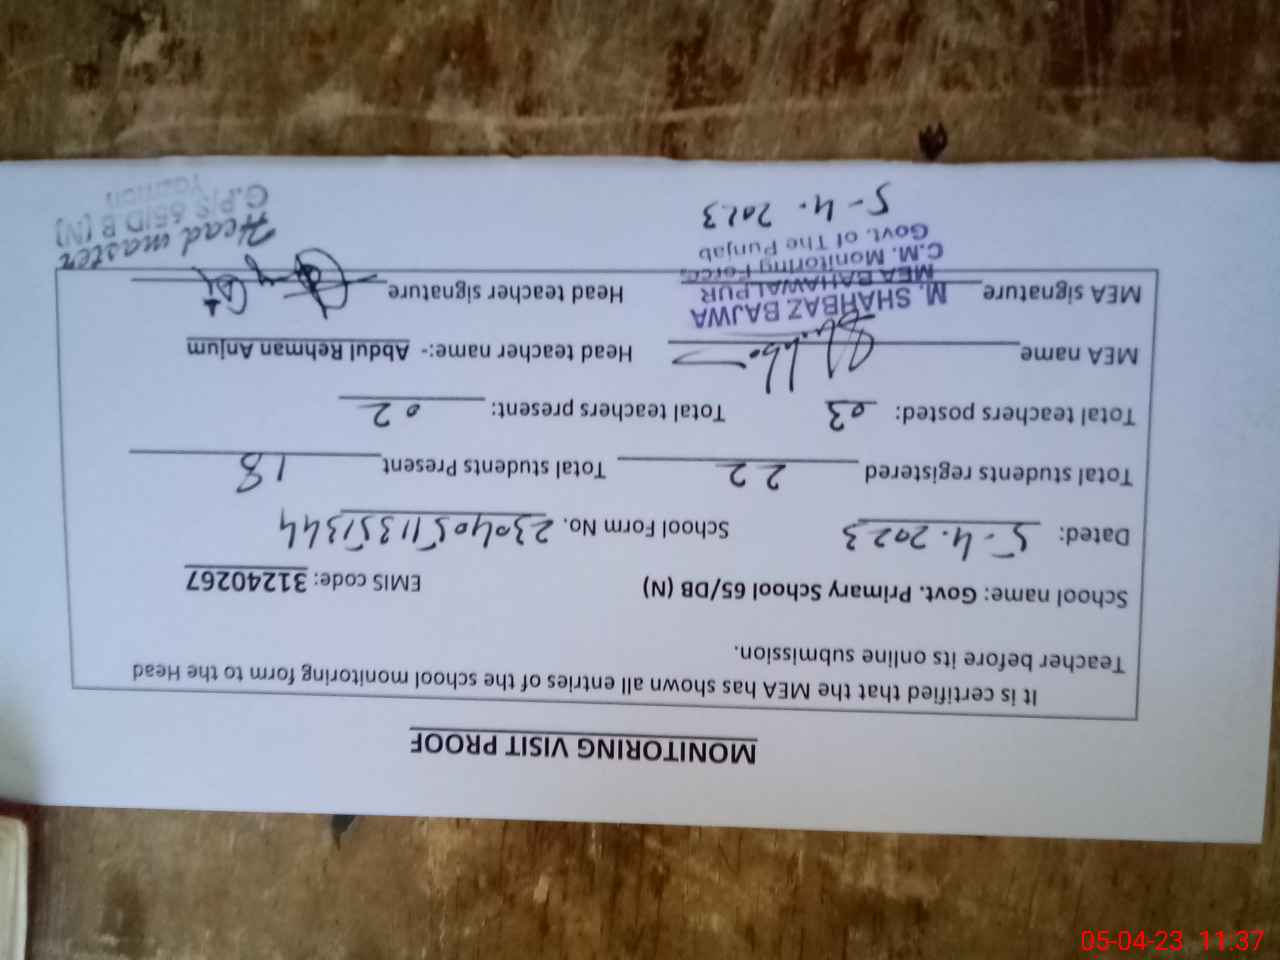 MONITORING VISIT PROOF
It is certified that the MEA has shown all entries of the school monitoring form to the Head
Teacher before its online submission.
School name: Govt. Primary School 65/DB (N) EMIS code: 31240267
Dated: 5-4.2023 School Form No. 23040511351344
Total students registered 22 Total students Present 18
Total teachers posted: 03 Total teachers present: 02
MEA name Head teacher name:- Abdul Rehman Anjum
MEA signature Head teacher signature
M. SHAHBAZ BAJWA
MEA BAHAWALPUR
C.M. Monitoring Force
Govt. of The Punjab
5-4.2023
Head master
G.P/S 65/D.B (N)
05-04-23 11:37